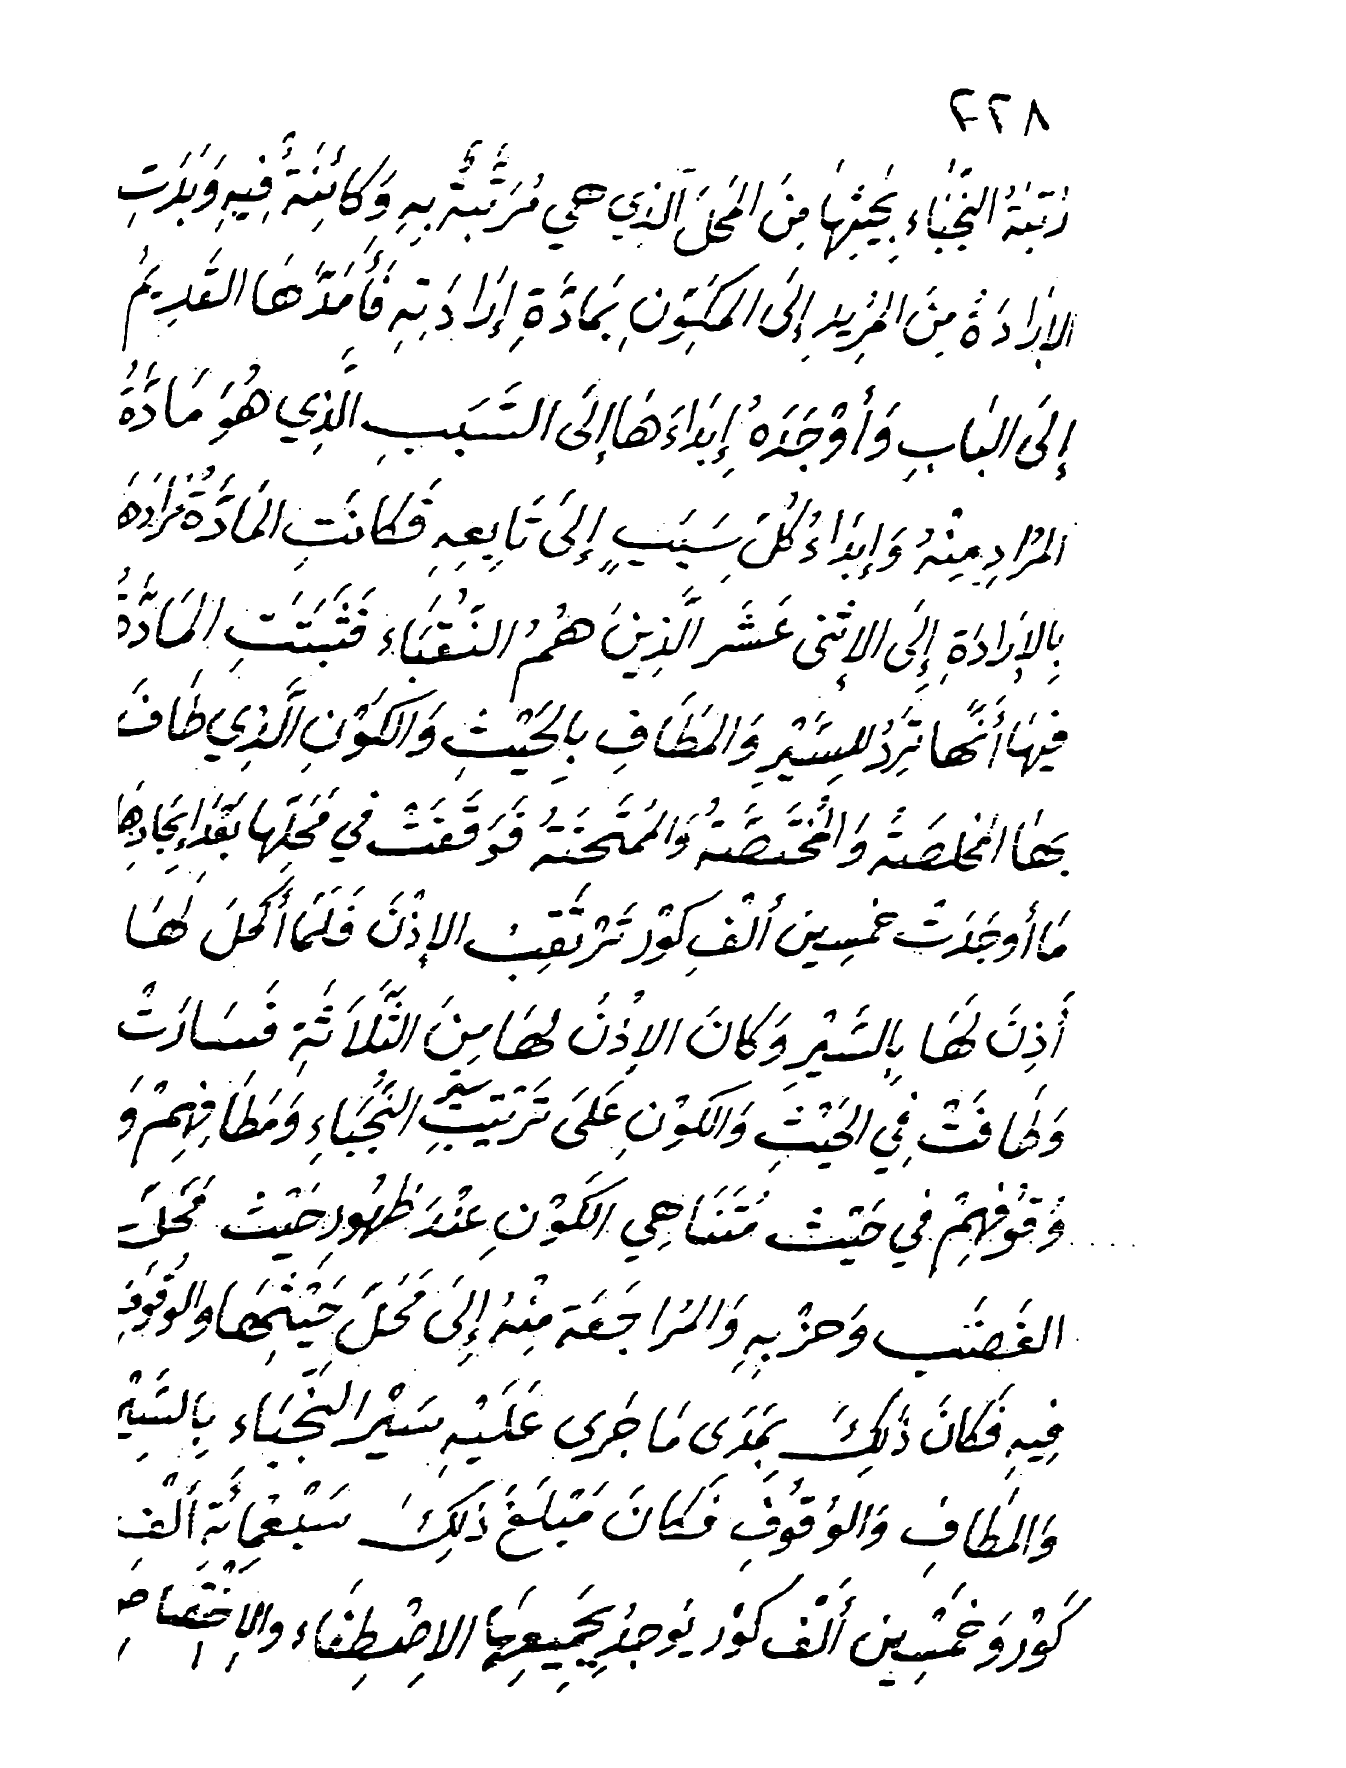 ٢٢٨
رُتْبَةُ النُّجَبَاءِ بِحَيْثِهَا مِنَ المَحَلِّ الَّذِي هِي مُرَتَّبَةٌ بِهِ وَكَائِنَةٌ فِيهِ وَبَدَتِ
الإِرَادَةُ مِنَ المُرِيدِ إِلَى المُكَوَّنِ بِمَادَّةِ إِرَادَتِهِ فَأَمَدَّهَا القَدِيمُ
إِلَى البَابِ وَأَوْجَدَهُ إِبْدَاءَهَا إِلَى السَّبَبِ الَّذِي هُوَ مَادَّةُ
المُرَادِ مِنْهُ وَإِبْدَاءُ كُلِّ سَبَبٍ إِلَى تَابِعِهِ فَكَانَتِ المَادَّةُ مُرَادَةً
بِالإِرَادَةِ إِلَى الإِثْنَى عَشَر الَّذِينَ هُمُ النُّقَبَاء فَثَبَتَتِ المَادَّةُ
فِيهَا أَنَّهَا تَرِدُ للسَّيْرِ وَالمَطَافِ بِالحَيْثِ وَالكَوْنِ الَّذِي طَافَ
بِهَا المُخلِصَةُ وَالمُخْتَصَّةُ وَالمُمْتَحَنَةُ فَوَقَفَتْ فِي مَحَلِّهَا بَعْدَ إِيجَادِهَا
مَا أَوجَدَتْ خَمْسِينَ أَلْفَ كَوْر تَرْتَقِبُ الإِذْنَ فَلَمَّا أَكْمَلَ لَهَا
أَذِنَ لَهَا بِالسَّيْرِ وَكَانَ الإِذْنُ لَهَا مِنَ الثَّلَاثَةِ فَسَارَتْ
وَطَافَتْ فِي الحَيْثِ وَالكَوْنِ عَلَى تَرْتِيبِ سَيْرِ النُّجَبَاءِ وَمَطَافِهِمْ وَ
وُقُوفِهِمْ فِي حَيْثِ مُتَنَاهِي الكَوْنِ عِنْدَ ظُهُورِ حَيْث مَحَلِّ
الغَضَبِ وَحِزْبِهِ وَالمُرَاجَعَة مِنْهُ إِلَى مَحَلِّ حَيْثِهَا والوُقُوفِ
فِيهِ فَكَانَ ذَلِكَ بِمَدَى مَا جَرَى عَلَيْهِ سَيْر النُّجَبَاءِ بِالسَّيْرِ
وَالمَطَافِ وَالوُقُوفِ فَكَانَ مَبْلَغُ ذَلِكَ سَبْعمِائَةِ أَلْفِ
كَوْر وَخَمْسِين أَلْف كَوْر يُوجدُ بِجَمِيعِهَا الاِصْطِفَاء والاِخْتِصَاص